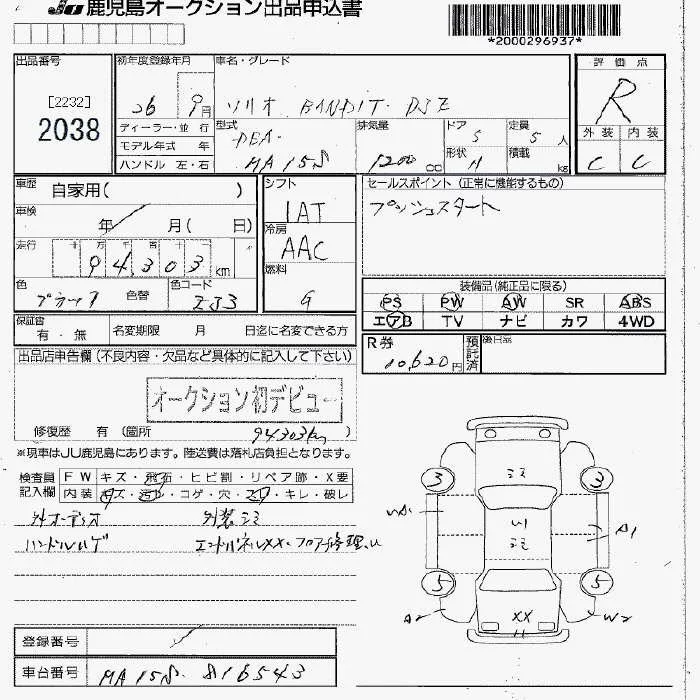 JU 鹿児島オークション出品申込書
*2000296937*
出品番号 初年度登録年月 車名・グレード 評価点
[2232]
2038
26 9月 ソリオ BANDIT・DJE R
ディーラー・並行 型式 排気量 ドア 定員 外装 内装
モデル年式 年 DBA- 5 5人
ハンドル 左・右 MA15S 1200cc 形状 H 積載 kg C C
車歴 自家用( ) シフト セールスポイント (正常に機能するもの)
車検 年 月( 日) 1AT プッシュスタート
冷房
走行 十万千百十 94,303km AAC
燃料
色 ブラック 色替 色コード ZJ3 G
装備品(純正品に限る)
PS PW AW SR ABS
エアB TV ナビ カワ 4WD
保証書 有・無 名変期限 月 日迄に名変できる方
R券 10,620円 預託済 後日
出品店申告欄(不良内容・欠品など具体的に記入して下さい)
オークション初デビュー
修復歴 有 (箇所 94303km )
※現車はJU鹿児島にあります。陸送費は落札店負担となります。
検査員記入欄 FW キズ・飛石・ヒビ割・リペア跡・X要
内装 キズ・汚レ・コゲ・穴・スレ・キレ・破レ
外オーディオ 外装シミ
ハンドルハゲ エンドパネルXX・フロア修理
3 シミ 3
U1
シミ A1
5 5
A2 XX W2
登録番号
車台番号 MA15S-816543